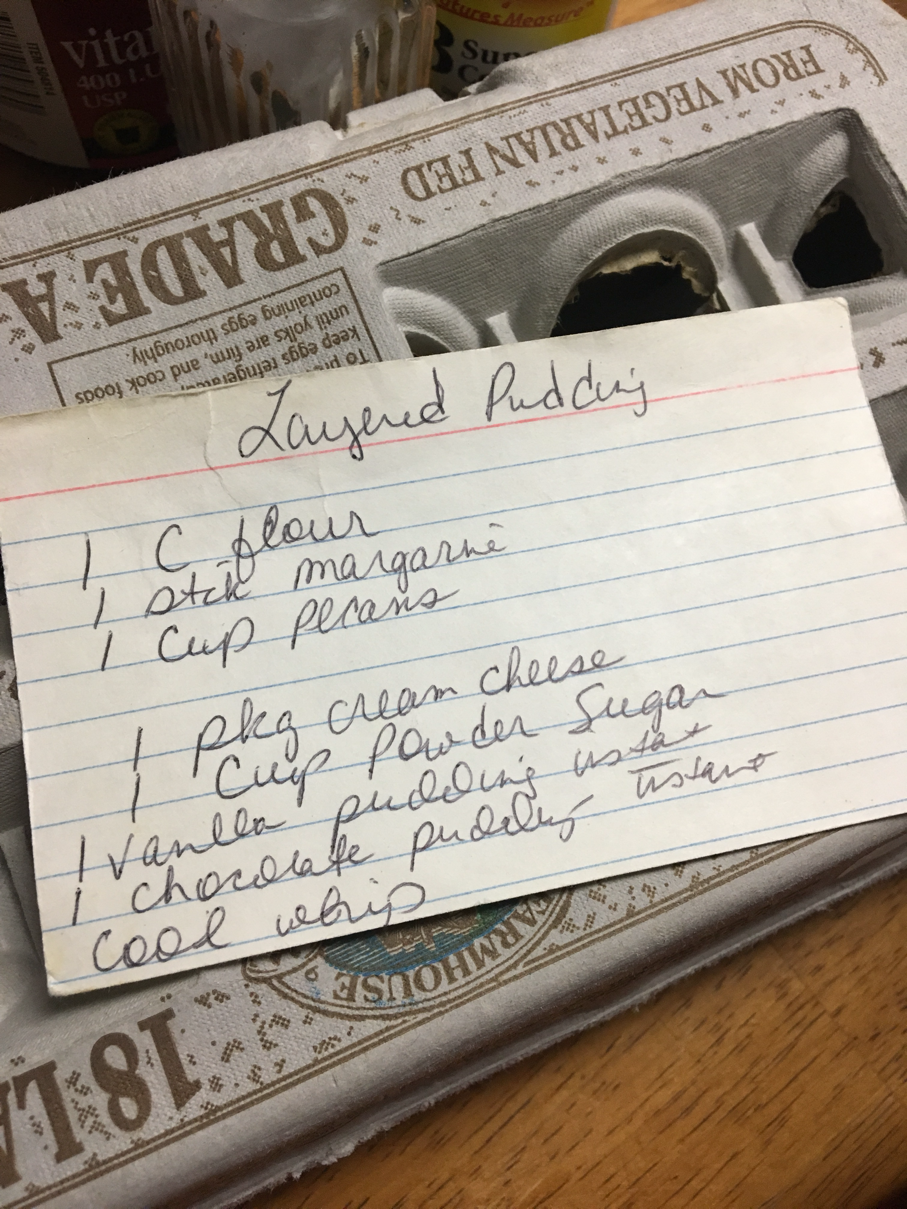 vita
400 I.U
USP
Nature's Measure™
B
Sup
Co
FROM VEGETARIAN FED
GRADE A
To
keep eggs
until yolks are firm, and cook foods
containing eggs thoroughly.
Layered Pudding
1 C flour
1 stik margarine
1 Cup pecans
1 pkg cream cheese
1 Cup Powder Sugar
1 Vanilla pudding instat
1 chocolate pudding instant
Cool whip
FARMHOUSE
18 LA